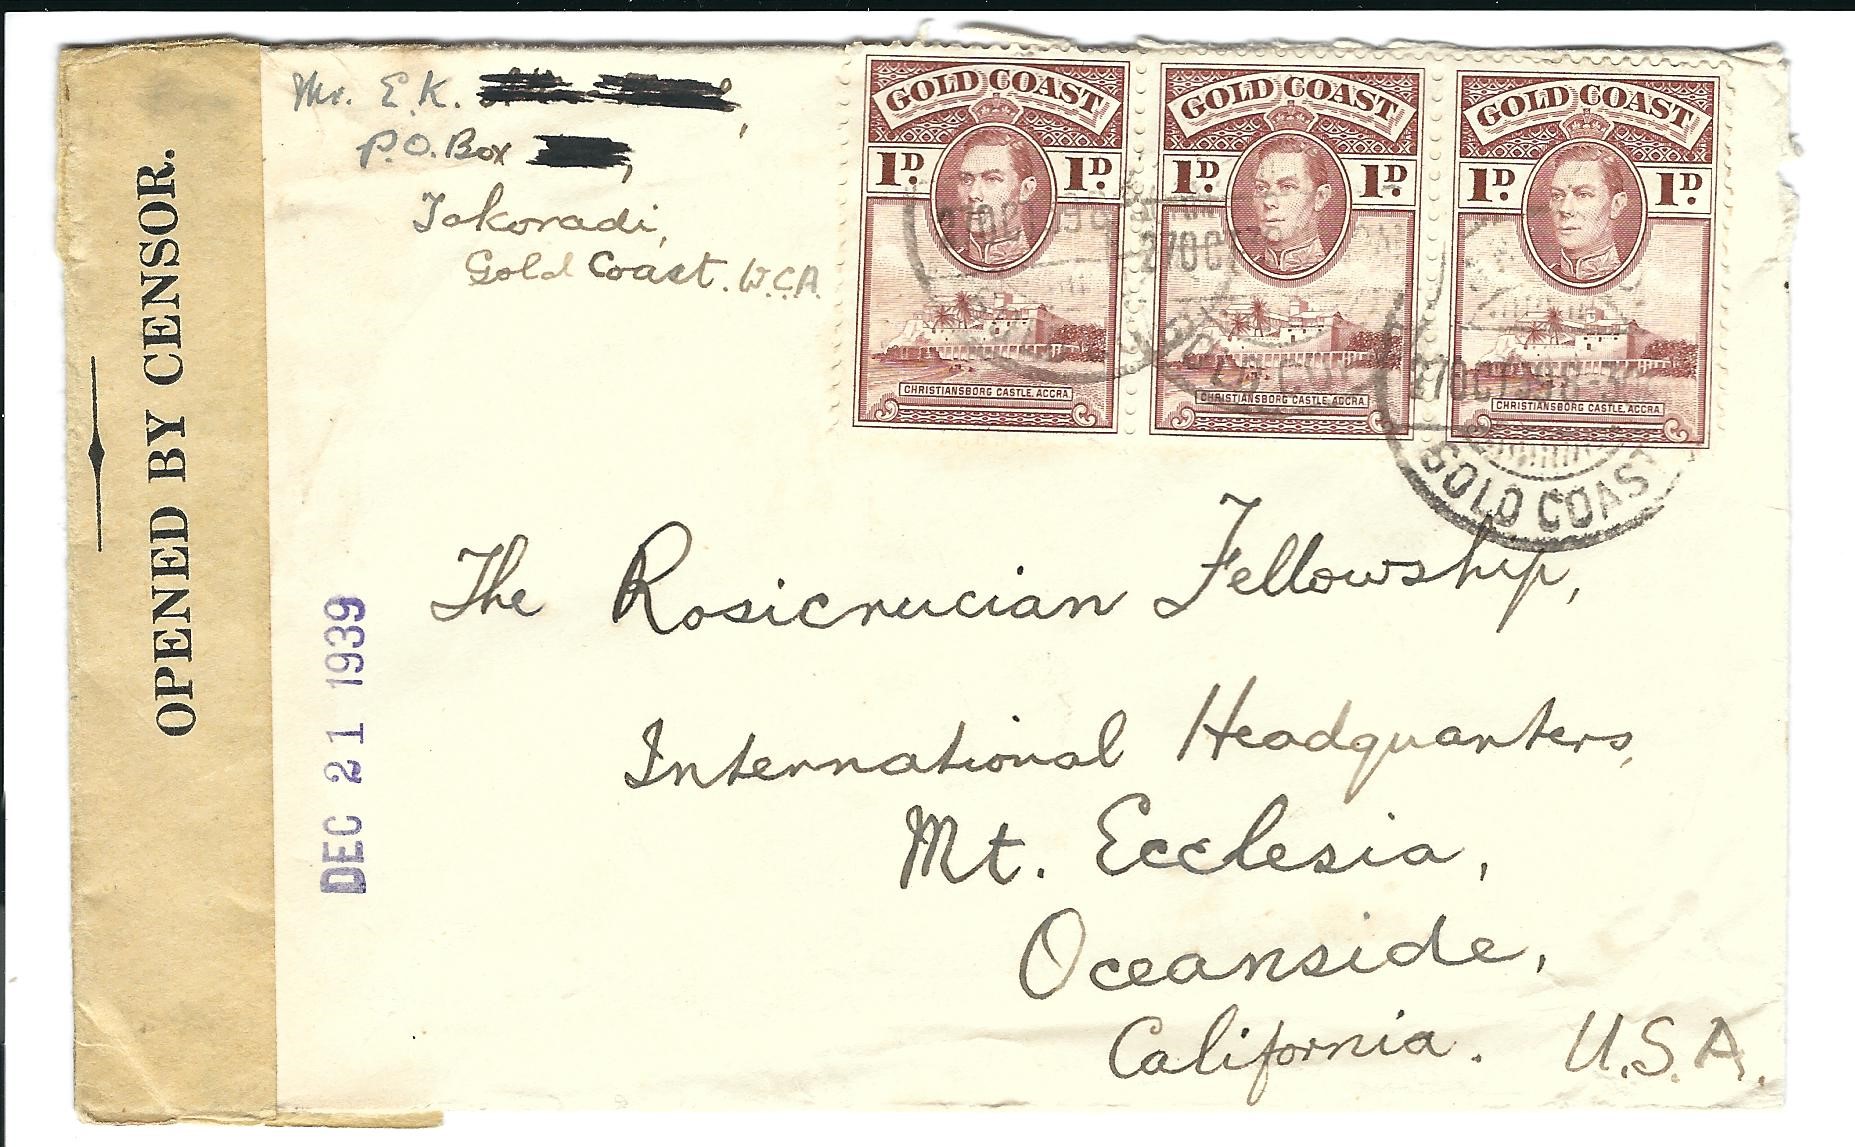 OPENED BY CENSOR.
Mr. E.K.
P.O. Box
Takoradi,
Gold Coast. W.C.A.
GOLD COAST
1D. 1D.
CHRISTIANSBORG CASTLE. ACCRA.
GOLD COAST
1D. 1D.
CHRISTIANSBORG CASTLE. ACCRA.
GOLD COAST
1D. 1D.
CHRISTIANSBORG CASTLE. ACCRA.
27 OCT
27 OCT
27 OCT
GOLD COAST
DEC 21 1939
The Rosicrucian Fellowship,
International Headquarters,
Mt. Ecclesia,
Oceanside,
California. U.S.A.